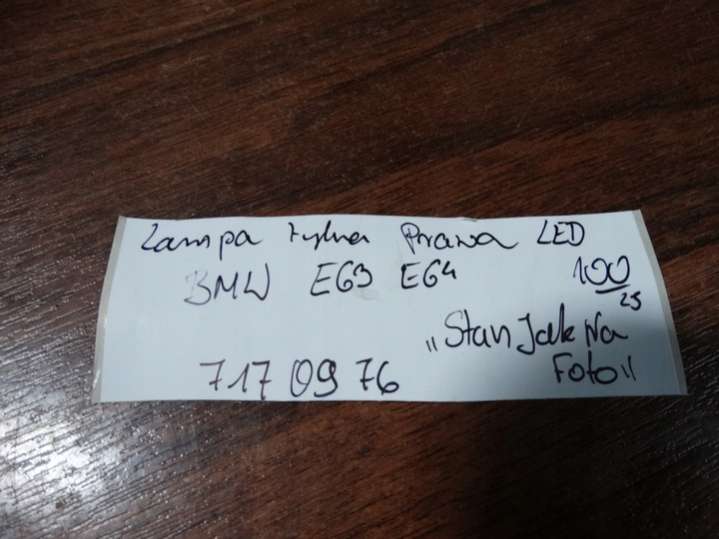 Lampa tylna Prawa LED
BMW E63 E64 100
25
„Stan Jak Na
Foto"
717 09 76